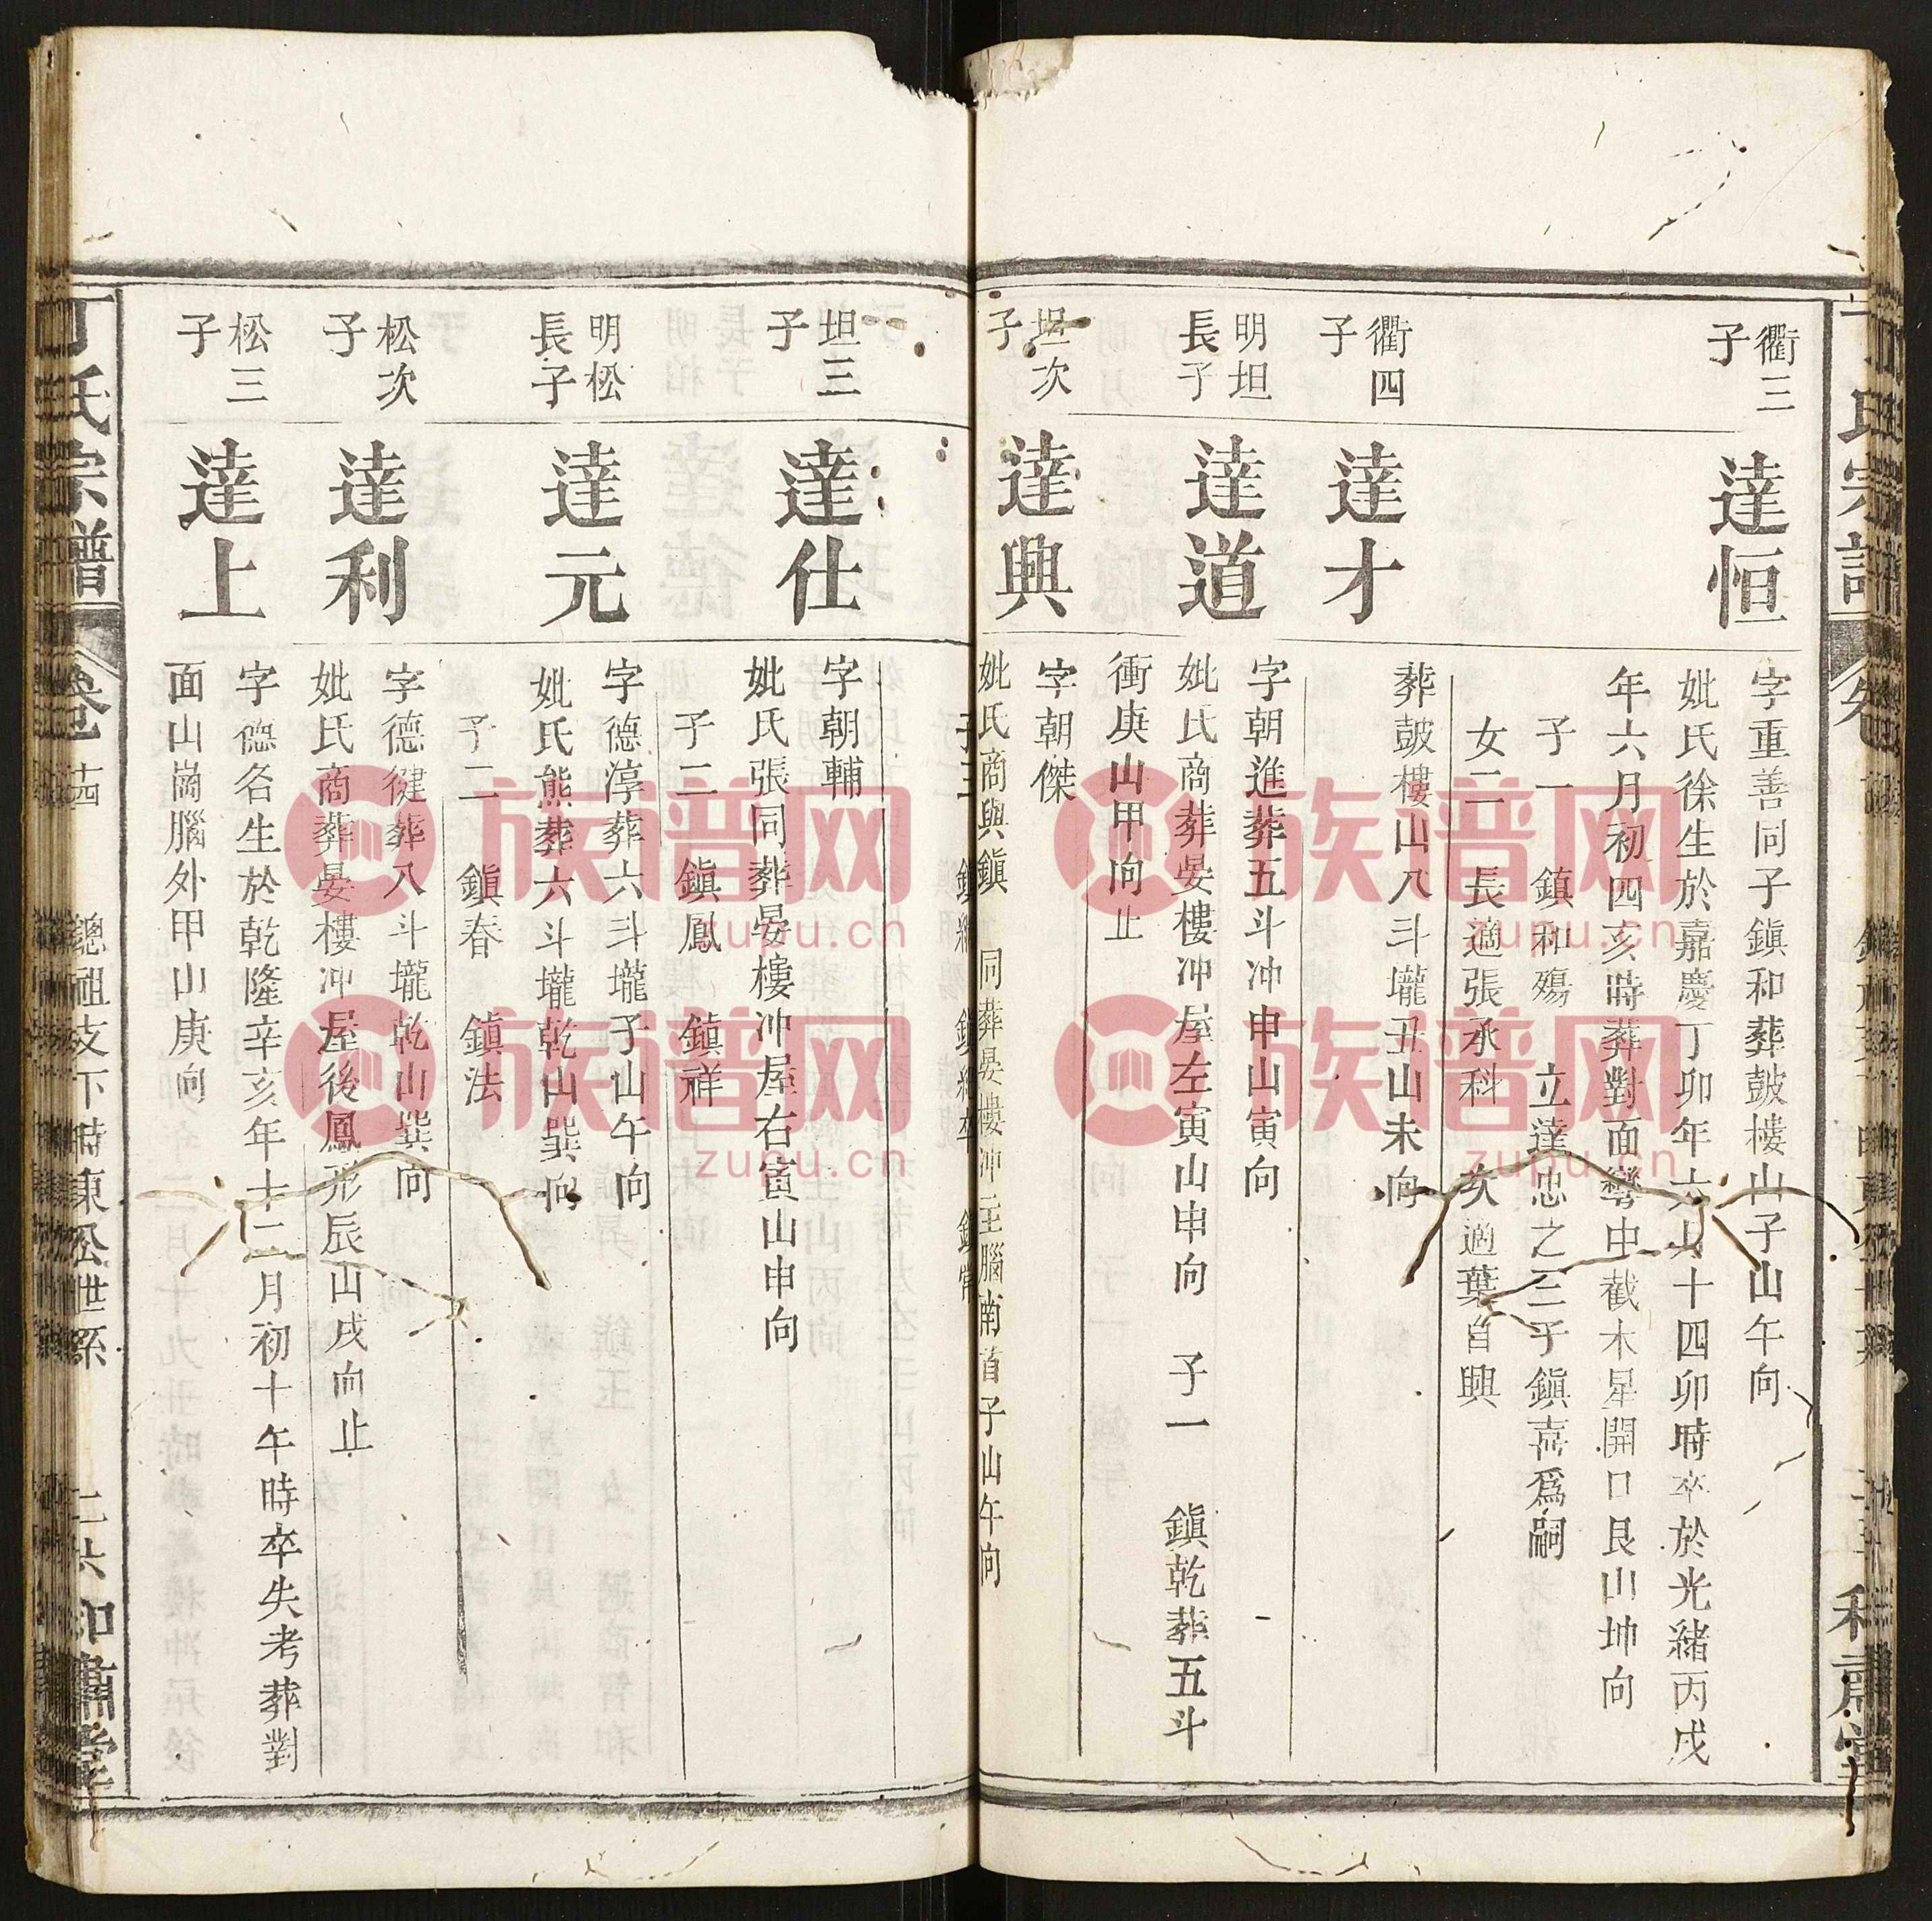 衢三
子
達恒
字重善同子鎮和葬鼓樓山子山午向
妣氏徐生於嘉慶丁卯年六月十四卯時卒於光緒丙戌
年六月初四亥時葬對面彎中截木星開口艮山坤向
子一 鎮和殤 立達忠之三子鎮嘉爲嗣
女二 長適張承科 次適葉自興
衢四
子
達才
葬鼓樓山八斗壠丑山未向
明坦
長子
達道
字朝進葬五斗冲申山寅向
妣氏商葬晏樓冲屋左寅山申向 子一 鎮乾葬五斗
衝庚山甲向止
坦次
子
達興
字朝傑
妣氏商與鎮 同葬晏樓冲 腦南首子山午向
坦三
子
達仕
字朝輔
妣氏張同葬晏樓冲屋右寅山申向
子二 鎮鳳 鎮祥
明松
長子
達元
字德淳葬六斗壠子山午向
妣氏熊葬六斗壠乾山巽向
子二 鎮春 鎮法
松次
子
達利
字德健葬八斗壠乾山巽向
妣氏商葬晏樓冲屋後鳳形辰山戌向止
松三
子
達上
字德名生於乾隆辛亥年十二月初十午時卒失考葬對
面山崗腦外甲山庚向
丁氏宗譜
卷 十四
總祖支下時東松世系
二六
和肅堂
族谱网
zupu.cn
族谱网
zupu.cn
族谱网
zupu.cn
族谱网
zupu.cn